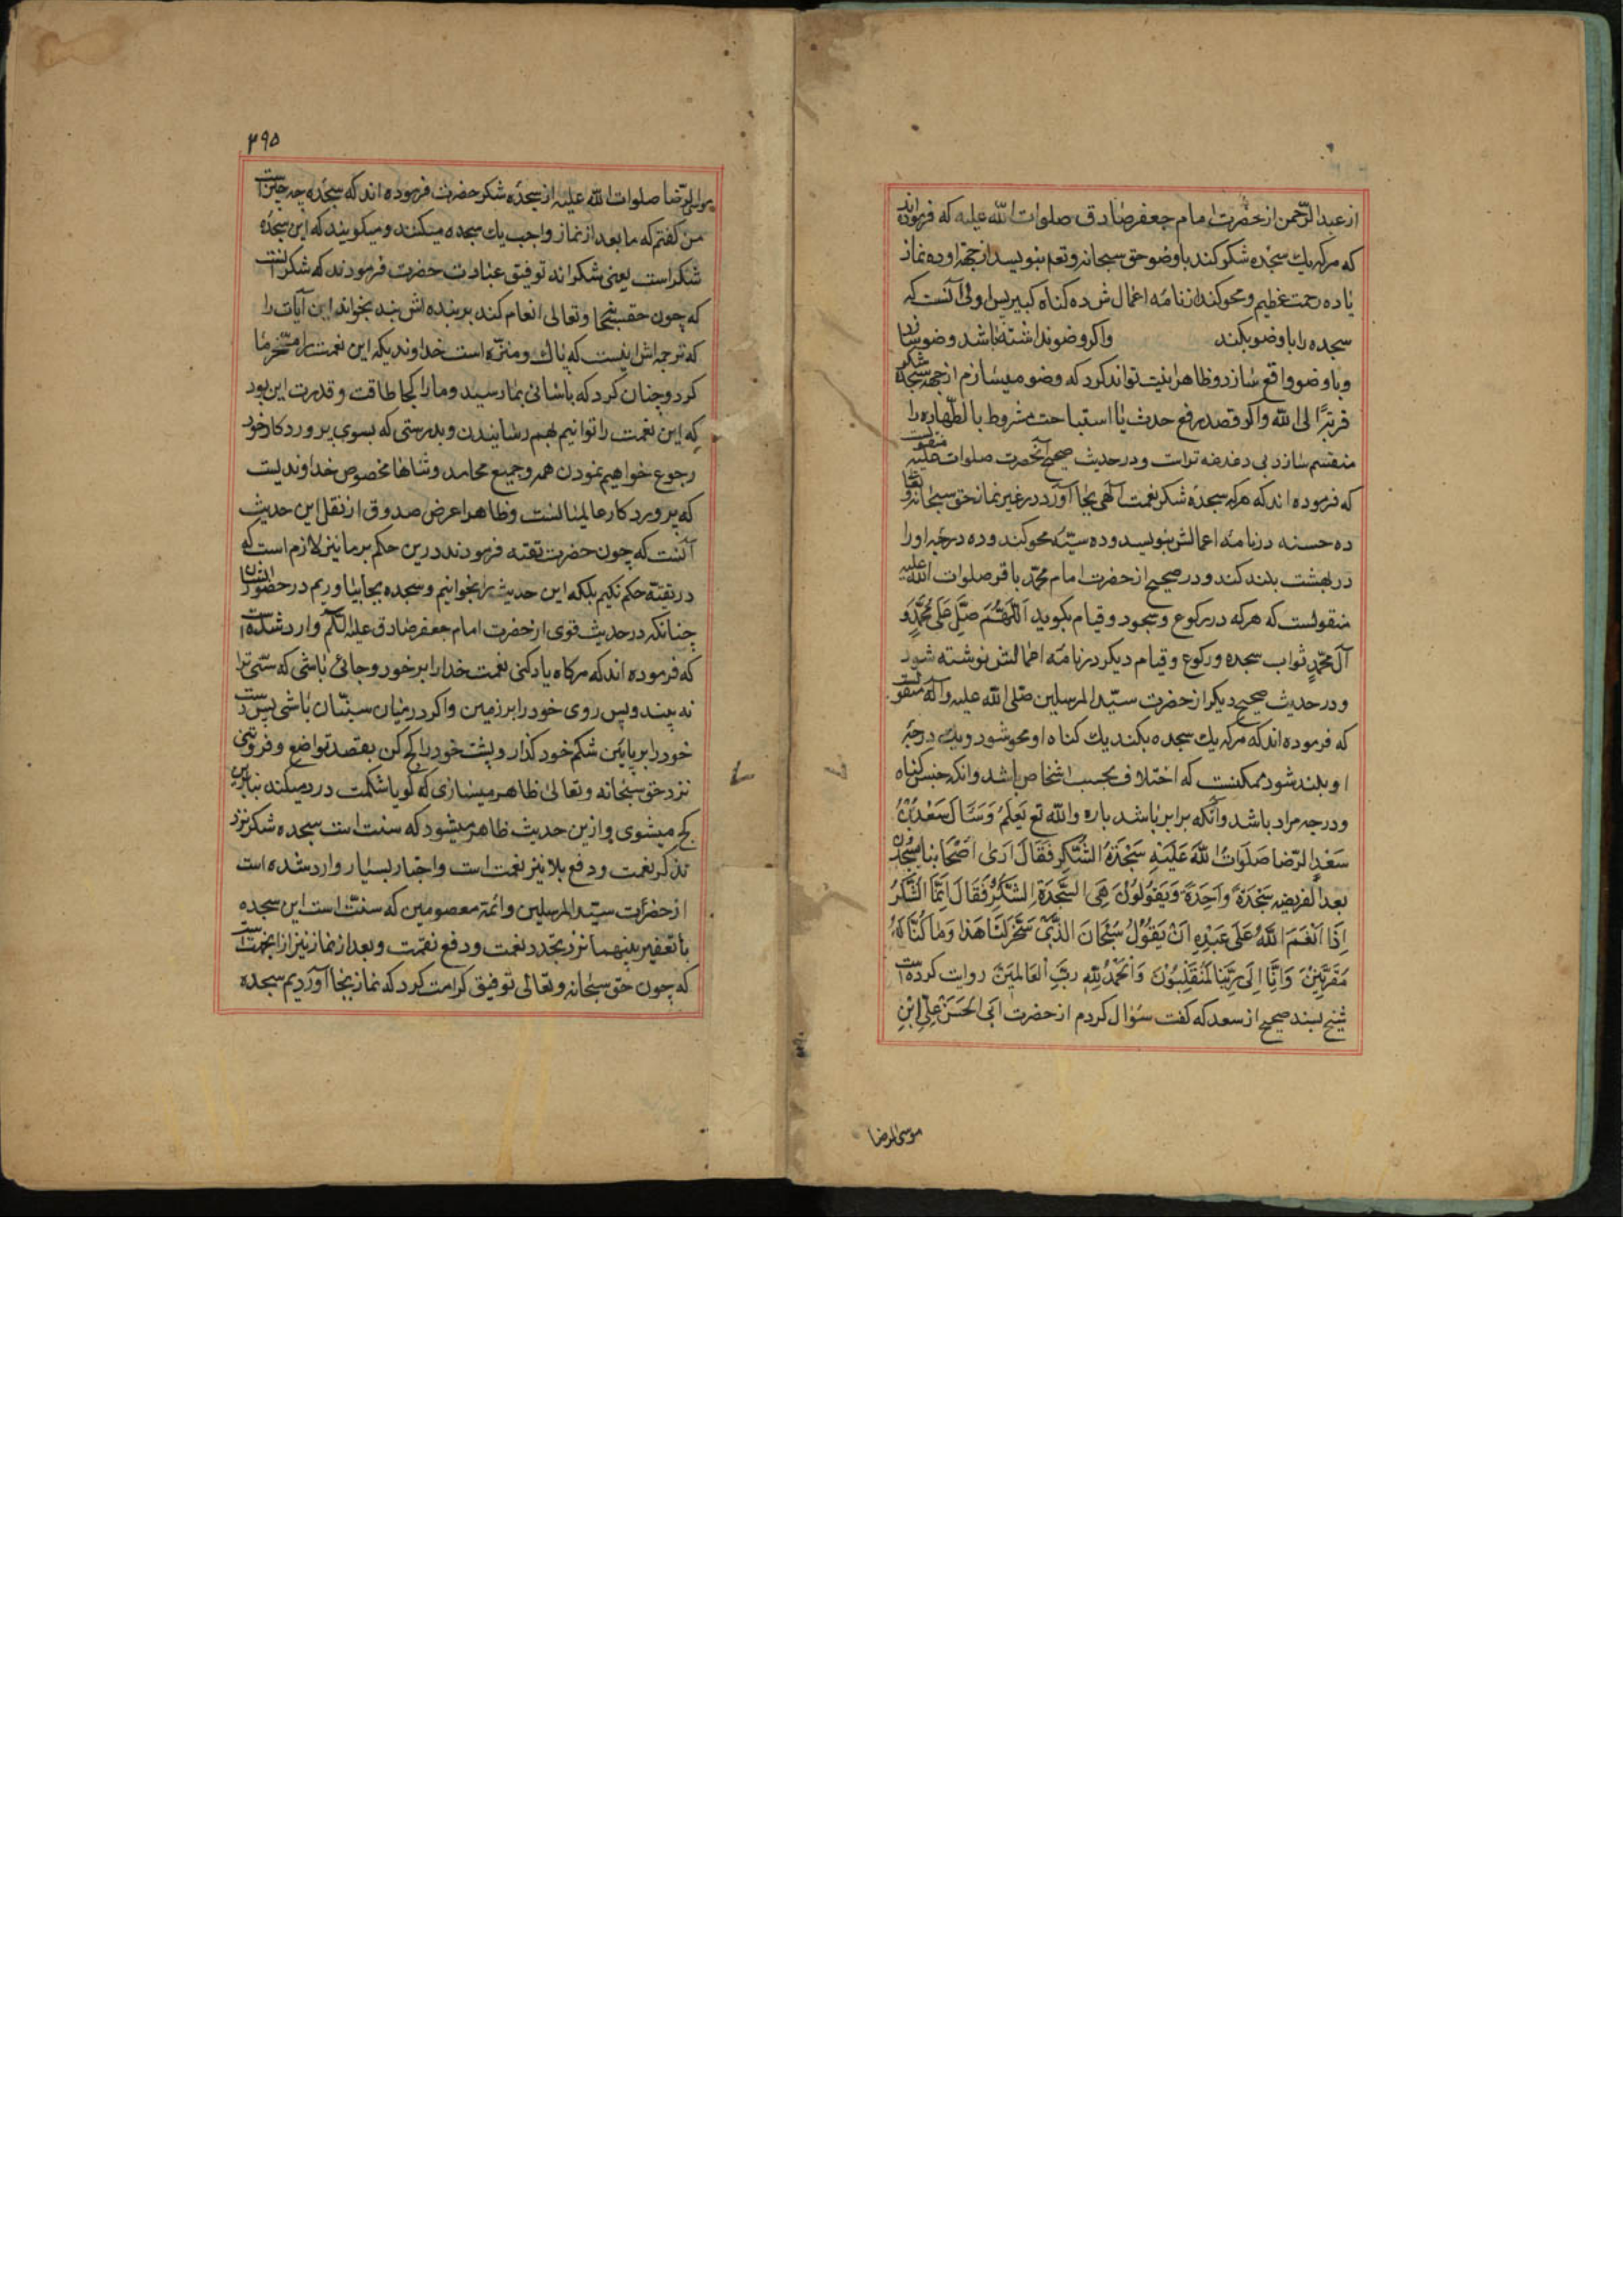 از عبد الرّحمن از حضرت امام جعفر صادق صلوات الله علیه که فرموده‌اند
که هرکه یك سجده شکر کند با وضو حق سبحانه و تعا بنویسد از جهة او ده نماز
یا ده رحمت عظیم و محو کند از نامه اعمالش ده کناه کبیره پس اولی آنست که
سجده را با وضو بکند واکر وضو نداشته باشد وضو سازد
و با وضو واقع سازد و ظاهرا نیت تواند کرد که وضو میسازم از جهة سجده شکر
قربةً الی الله واکر قصد رفع حدث یا استباحت مشروط بالطهاره را
منقسم سازد بی دغدغه تر است و در حدیث صحیح از آنحضرت صلوات علیه منقولست
که فرموده اند که هرکه سجده شکر نعمت الهی بجا آورد در غیر نماز حق سبحانه و تعا
ده حسنه در نامه اعمالش بنویسد و ده سیّئه محو کند و ده درجه او را
در بهشت بلند کند و در صحیح از حضرت امام محمّد باقر صلوات الله علیه
منقولست که هرکه در رکوع و سجود و قیام بکوید اَللّهُمَّ صَلِّ عَلی مُحَمَّدٍ وَ
آل محمّدٍ ثواب سجده و رکوع و قیام دیکر در نامه اعمالش نوشته شود
و در حدیث صحیح دیکر از حضرت سیّد المرسلین صلی الله علیه وآله منقولست
که فرموده اند که هرکه یك سجده بکند یك کناه او محو شود و یك درجه
او بلند شود ممکنست که اختلاف بحسب اشخاص باشد وانکه جنس کناه
و درجه مراد باشد وآنکه برابر باشد با ده والله تع یَعلَمُ وَسَئَالَ سَعْدُبْنُ
سَعْدٍ الرّضا صَلَوَاتُ اللّهِ عَلَیْهِ سَجْدَةُ الشُّکْرِ فَقَالَ اَرَی اَصْحَابَنَا یَسْجُدُونَ
بعد الفریضه سَجْدَةً وَاَحِدَةً وَیَقُولُونَ هِیَ السَّجْدَةُ الشُّکْرِ فَقَالَ اِنَّمَا الشُّکْرُ
اِذَا اَنْعَمَ اللّهُ عَلَی عَبْدِهِ اَنْ یَقُوْلَ سُبْحَانَ الَّذِی سَخَّرَ لَنَا هَذَا وَمَا کُنَّا لَهُ
مُقْرِنِیْنَ وَاِنَّا اِلَی رَبِّنَا لَمُنْقَلِبُوْنَ وَالْحَمْدُ لِلّهِ رَبِّ الْعَالَمِیْنَ روایت کرده است
شیخ بسند صحیح از سعد که کفت سُؤال کردم از حضرت اَبی الحَسَنْ عَلِیِّ اِبْنِ
موسی الرضا
۲۹۵
موسی الرّضا صلوات الله علیه از سجده شکر حضرت فرموده اند که سجده چه چیز است
من کفتم که ما بعد از نماز واجب یك سجده میکنند و میکویند که این سجده
شکر است یعنی شکرانه توفیق عبادت حضرت فرمودند که شکر آنست
که چون حقسبحا و تعالی انعام کند بر بنده اش بنده بخواند این آیات را
که ترجمه اش اینست که پاك و منزّه است خداوندیکه این نعمت را مسخّر ما
کرد و چنان کرد که باسانی بما رسید و ما را کجا طاقت و قدرت این بود
که این نعمت را توانیم بهم رسانیدن و بدرستی که بسوی پروردکار خود
رجوع خواهیم نمودن همه و جمیع محامد و ثناها مخصوص خداوندیست
که پروردکار عالمیانست و ظاهرا غرض صدوق از نقل این حدیث
آنست که چون حضرت تقیه فرمودند درین حکم بر ما نیز لازم است که
در تقیّه حکم نکنیم بلکه این حدیث را بخوانیم و سجده بجا نیاوریم در حضور ایشان
چنانکه در حدیث قوی از حضرت امام جعفر صادق علیه السّلام وارد شده است
که فرموده اند که هرکاه یاد کنی نعمت خدا را بر خود و جائی باشی که سنّی ترا
نه بیند پس روی خود را بر زمین واکر در میان سنیّان باشی پس دست
خود را بر پایین شکم خود کذار و پشت خود را کج کن بقصد تواضع و فروتنی
نزد حق سبحانه و تعالی ظاهر میسازی که کویا شکمت درد میکند بنابراین
کج میشوی و ازین حدیث ظاهر میشود که سنت است سجده شکر نزد
تذکر نعمت و دفع بلا نیز نعمت است واخبار بسیار وارد شده است
از حضرات سیّد المرسلین وائمّه معصومین که سنّت است این سجده
با تعفیر بینهما نزد تجدد نعمت و دفع نقمت و بعد از نماز نیز از اینجهت است
که چون حق سبحانه و تعالی توفیق کرامت کرد که نماز بجا آوردیم سجده